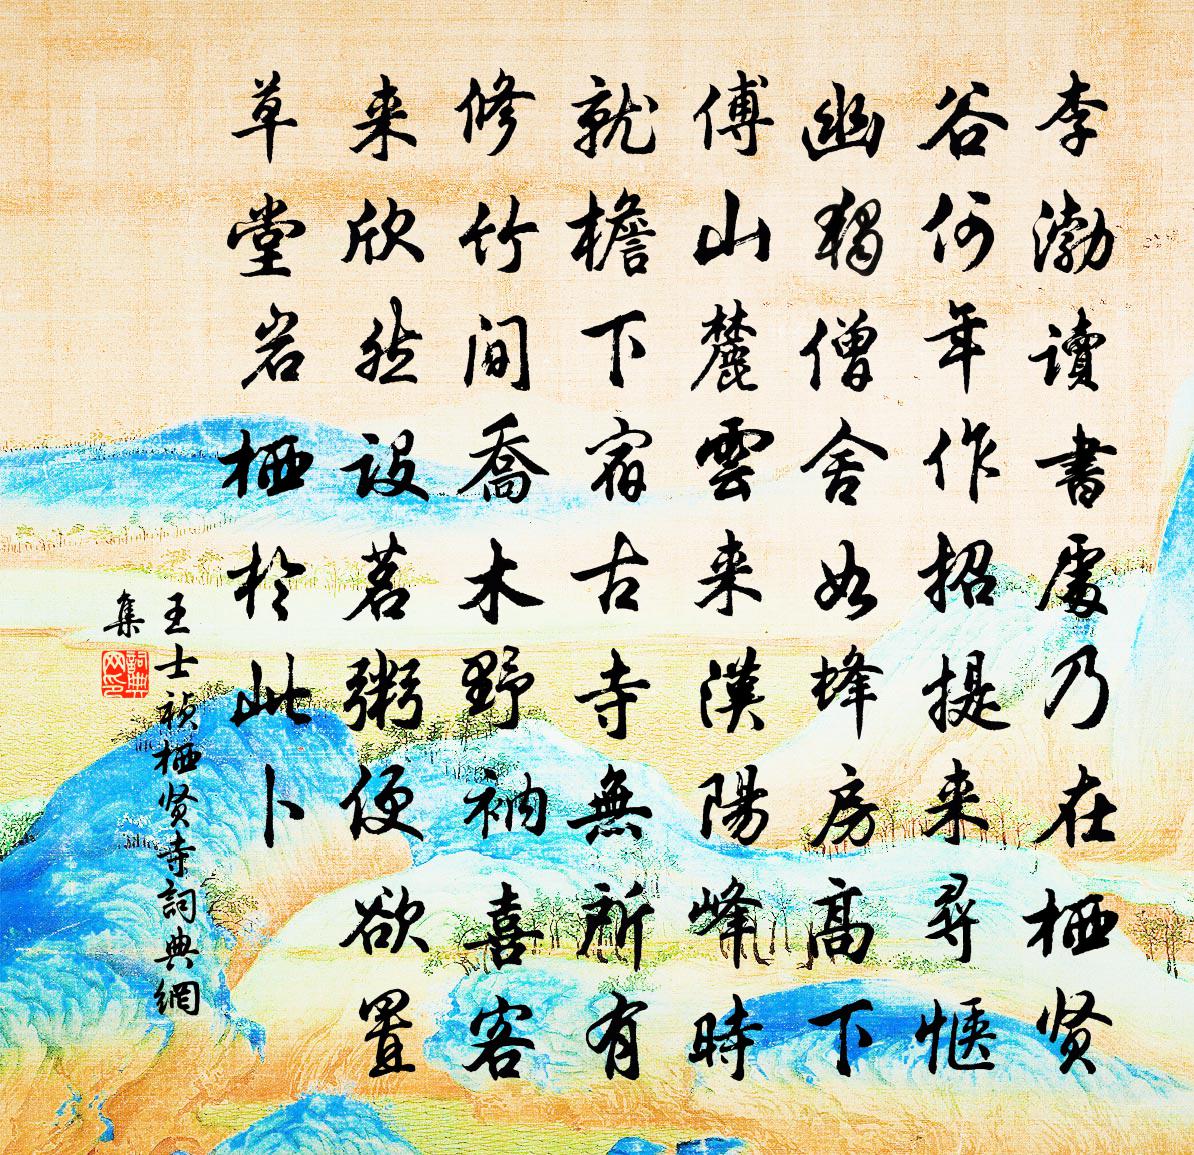 李渤讀書處乃在栖贤
谷何年作招提来尋愜
幽獨僧舍如蜂房高下
傅山麓雲来漢陽峰時
就檐下宿古寺無所有
修竹間喬木野衲喜客
来欣然設茗粥便欲置
草堂岩栖於此卜
王士祯栖贤寺詞典網
集